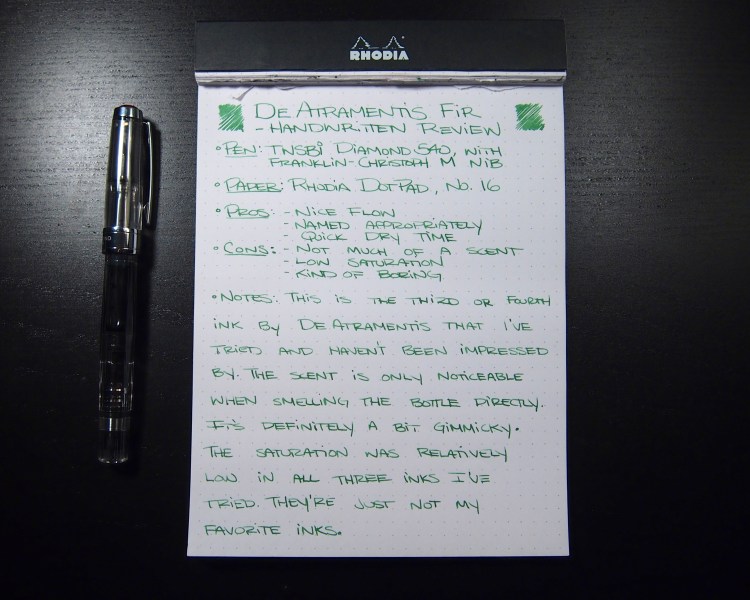 RHODIA
De Atramentis Fir
- Handwritten Review
• Pen: TWSBI Diamond 540, with
Franklin-Christoph M nib
• Paper: Rhodia DotPad, No. 16
• Pros: - Nice flow
- Named appropriately
- Quick dry time
• Cons: - Not much of a scent
- Low saturation
- Kind of boring
• Notes: This is the third or fourth
ink by De Atramentis that I've
tried and haven't been impressed
by. The scent is only noticeable
when smelling the bottle directly.
It's definitely a bit gimmicky.
The saturation was relatively
low in all three inks I've
tried. They're just not my
favorite inks.